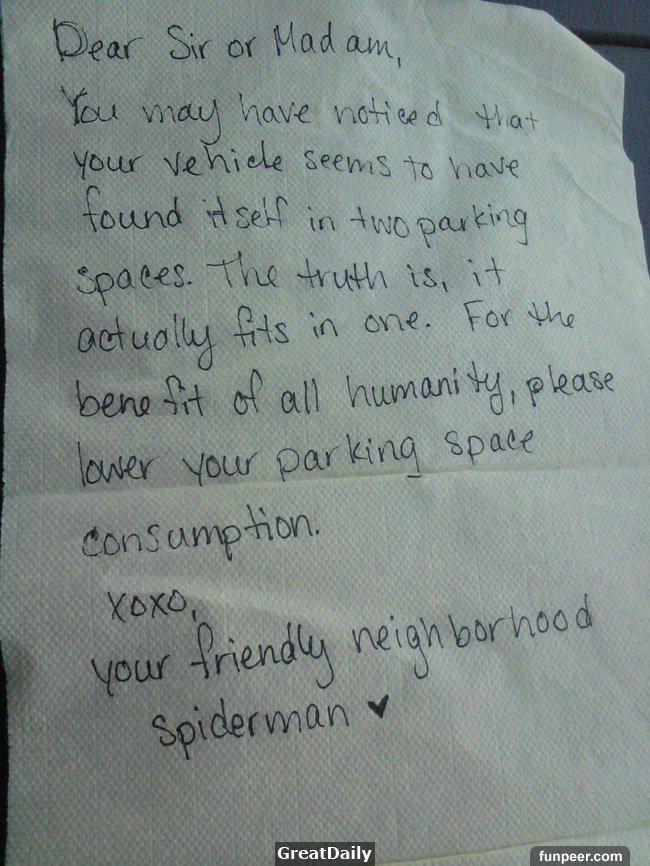 Dear Sir or Madam,
You may have noticed that
your vehicle seems to have
found itself in two parking
spaces. The truth is, it
actually fits in one. For the
benefit of all humanity, please
lower your parking space
consumption.
xoxo,
your friendly neighborhood
spiderman ♥
GreatDaily
funpeer.com